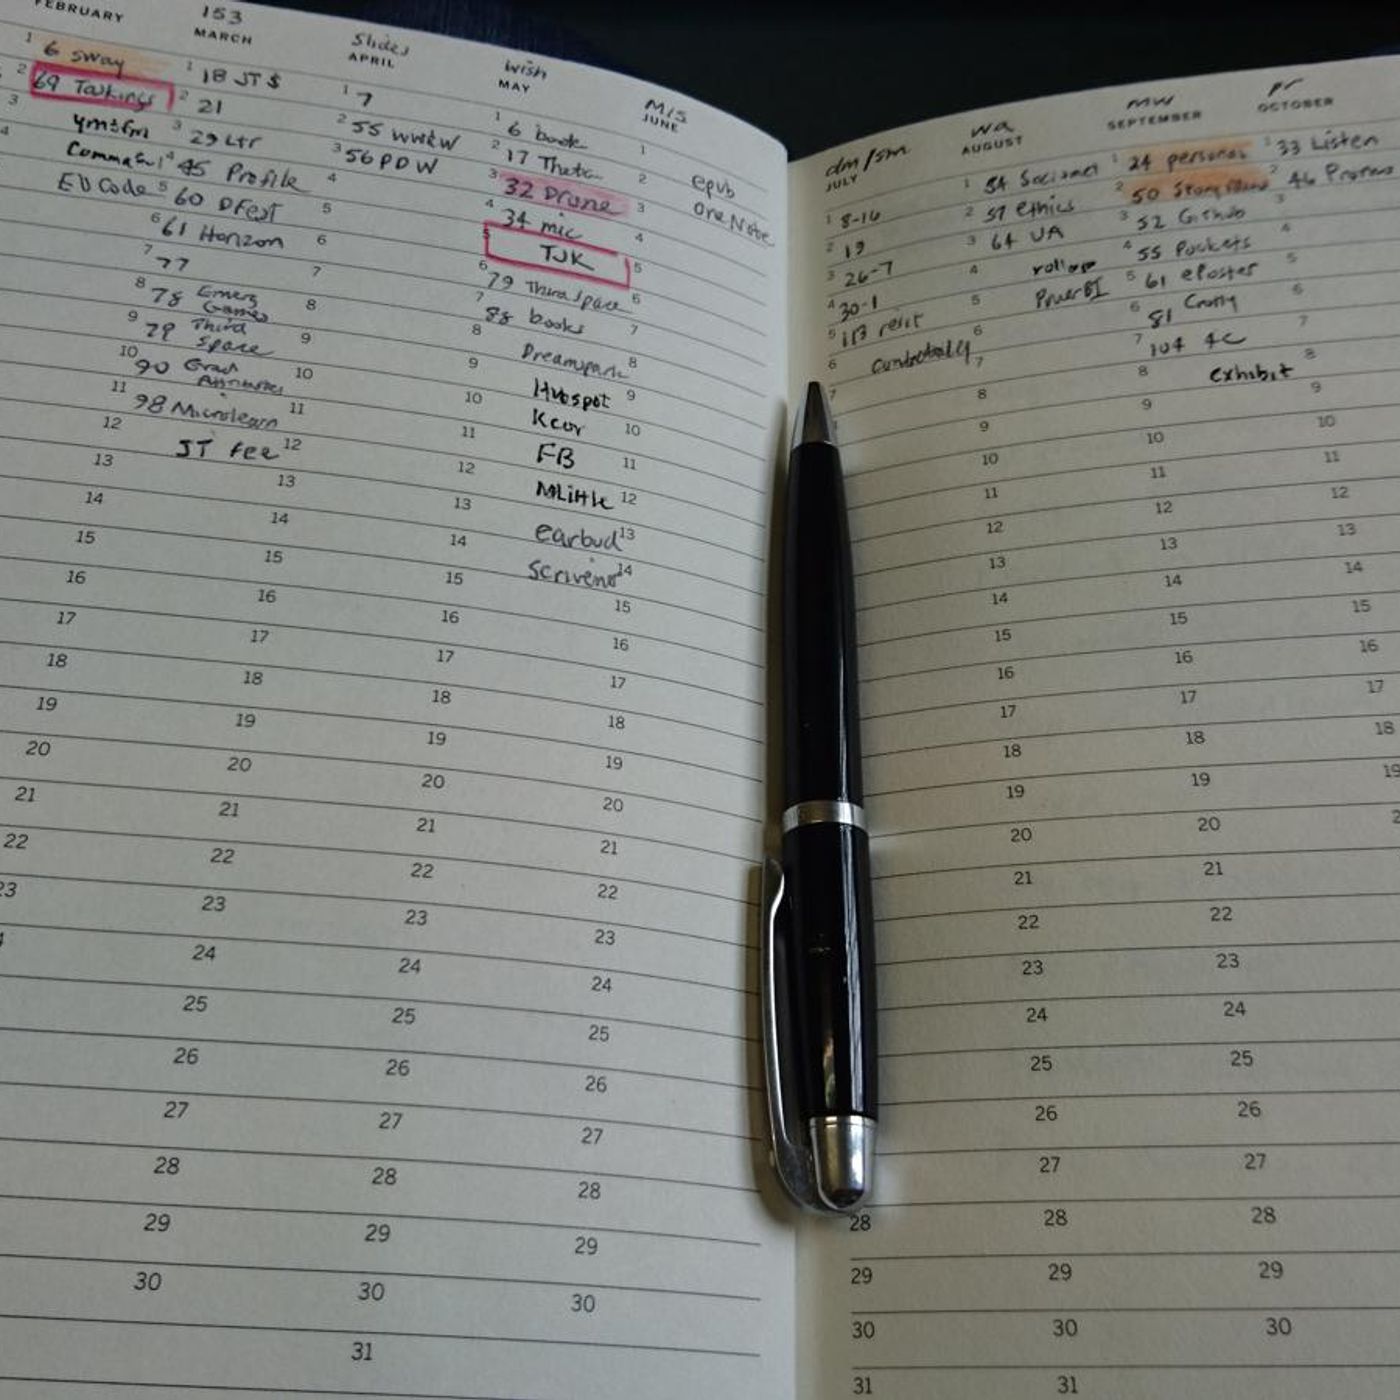 FEBRUARY
1 6 Sway
2 69 Talkings
3
4
EVCode
153
MARCH
1 18 JT $
2 21
3 29 Ltr
4 45 Profile
5 60 DFest
6 61 Horizon
7 77
8 78 Emerg Games
9 79 Third Space
10 90 Grad Attributes
11 98 Microlearn
12 JT fee
13
14
15
16
17
18
19
20
21
22
23
24
25
26
27
28
29
30
Slides
APRIL
1 7
2 55 WW&W
3 56 PDW
4
5
6
7
8
9
10
11
12
13
14
15
16
17
18
19
20
21
22
23
24
25
26
27
28
29
30
31
Wish
MAY
1 6 book
2 17
3 32 Drone
4 34 mic
5 TJK
6 79 Third Space
7 88 books
8 Dreamspark
9 Hubspot
10 Kcor
11 FB
12 MLittle
13 earbud
14
15
16
17
18
19
20
21
22
23
24
25
26
27
28
29
30
31
Mis
JUNE
1
2 epub
3 OneNote
4
5
6
7
8
9
10
11
12
13
14
15
16
17
18
19
20
21
22
23
24
25
26
27
28
29
30
dm/sm
JULY
1 8-16
2 19
3 26-7
4 30-1
5 113 resit
6
7
28
29
30
31
wa
AUGUST
1 54
2 57 ethics
3 64 UA
4 rollapp
5 PowerBI
6
7
8
9
10
11
12
13
14
15
16
17
18
19
20
21
22
23
24
25
26
27
28
29
30
31
mw
SEPTEMBER
1 24 personas
2 50
3 52 Github
4 55 Pockets
5 61 ePoster
6 81
7 104 4C
8 exhibit
9
10
11
12
13
14
15
16
17
18
19
20
21
22
23
24
25
26
27
28
29
30
pr
OCTOBER
1 33 Listen
2 46
3
4
5
6
7
8
9
10
11
12
13
14
15
16
17
18
19